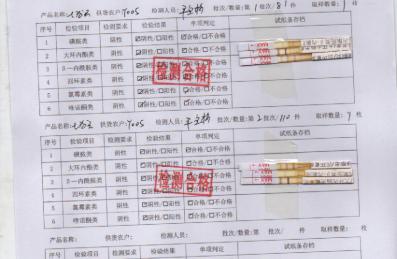 产品名称: 供货农户: Y005 检测人员: 批次/数量:第1批次/81件 取样数量: 枚
序号 检验项目 检测要求 检验结果 单项判定 试纸条存档
1 磺胺类 阴性 ☑阴性/☐阳性 ☑合格/☐不合格
2 大环内酯类 阴性 ☑阴性/☐阳性 ☑合格/☐不合格
3 β-内酰胺类 阴性 ☑阴性/☐阳性 ☑合格/☐不合格
4 四环素类 阴性 ☑阴性/☐阳性 ☑合格/☐不合格
5 氯霉素类 阴性 ☑阴性/☐阳性 ☑合格/☐不合格
6 喹诺酮类 阴性 ☑阴性/☐阳性 ☑合格/☐不合格
检测合格
产品名称: 供货农户: Y005 检测人员: 批次/数量:第2批次/110件 取样数量: 枚
序号 检验项目 检测要求 检验结果 单项判定 试纸条存档
1 磺胺类 阴性 ☑阴性/☐阳性 ☑合格/☐不合格
2 大环内酯类 阴性 ☑阴性/☐阳性 ☑合格/☐不合格
3 β-内酰胺类 阴性 ☑阴性/☐阳性 ☑合格/☐不合格
4 四环素类 阴性 ☑阴性/☐阳性 ☑合格/☐不合格
5 氯霉素类 阴性 ☑阴性/☐阳性 ☑合格/☐不合格
6 喹诺酮类 阴性 ☑阴性/☐阳性 ☑合格/☐不合格
检测合格
产品名称: 供货农户: 检测人员: 批次/数量:第 批次/ 件 取样数量: 枚
序号 检验项目 检测要求 检验结果 单项判定 试纸条存档